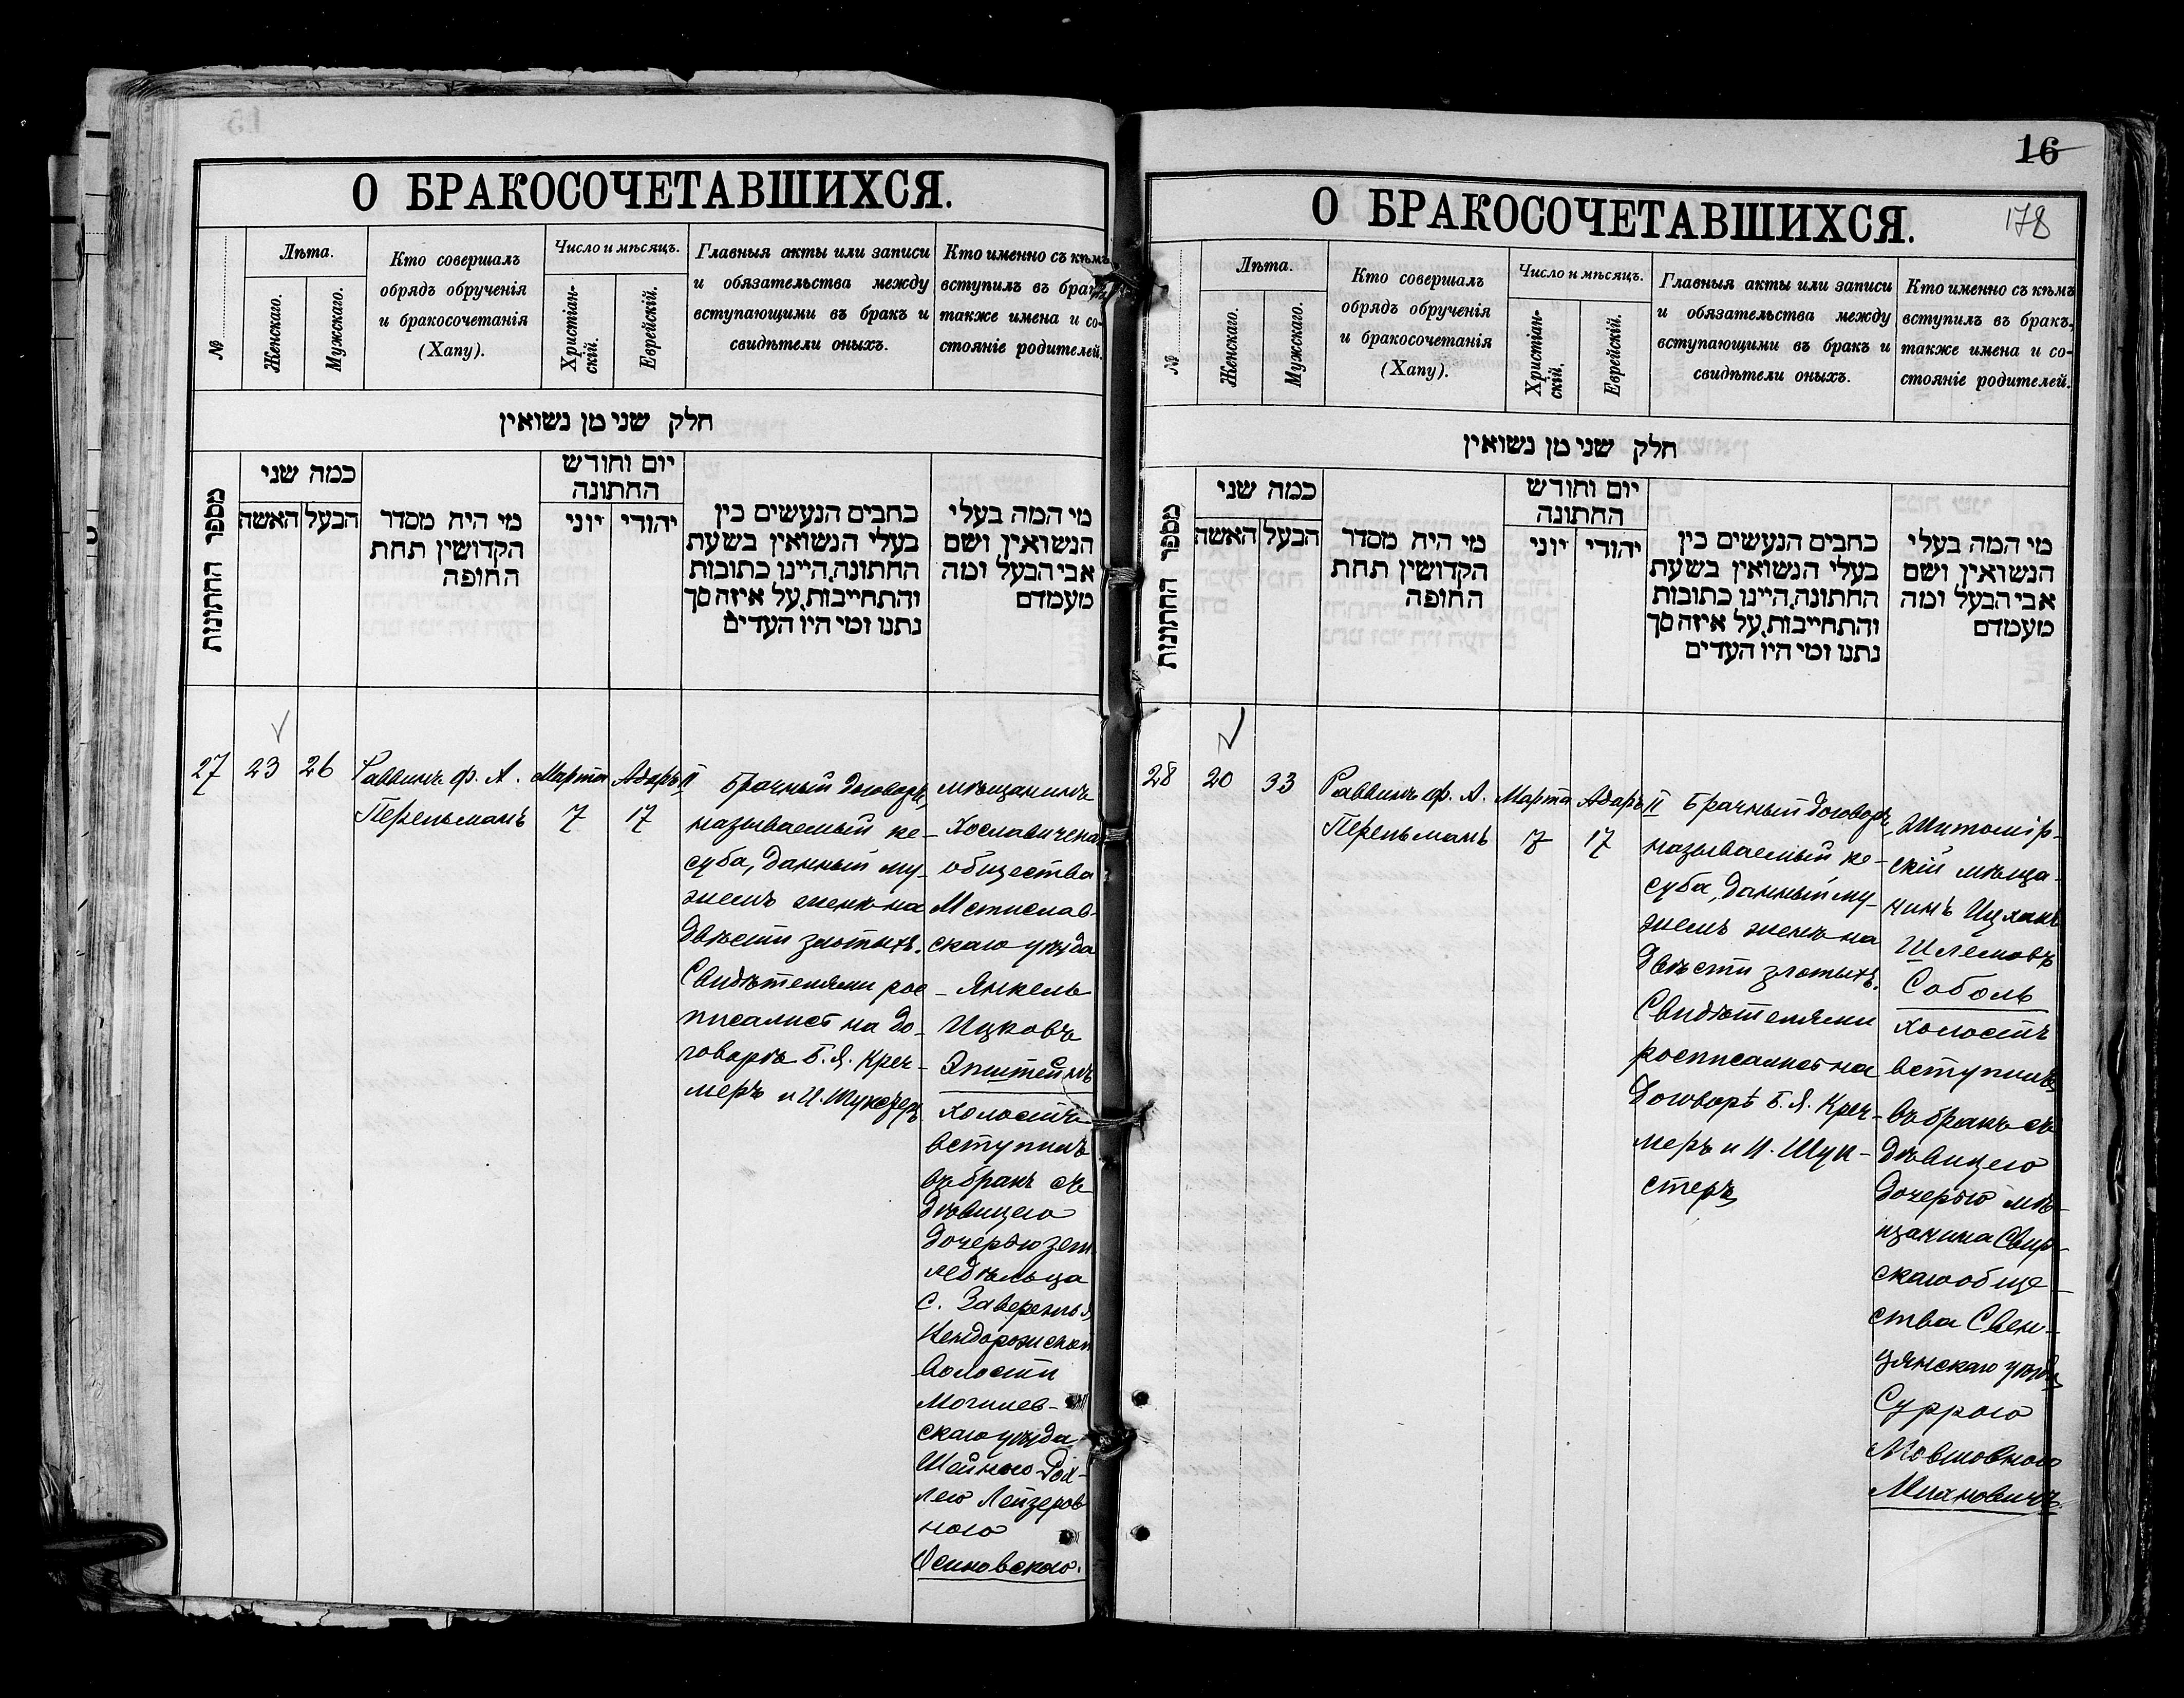 О БРАКОСОЧЕТАВШИХСЯ.
№
Лѣта.
Женскаго.
Мужскаго.
Кто совершалъ
обрядъ обрученія
и бракосочетанія
(Хапу).
Число и мѣсяцъ.
Христіан-
скій.
Еврейскій.
Главныя акты или записи
и обязательства между
вступающими въ бракъ и
свидѣтели оныхъ.
Кто именно съ кѣмъ
вступилъ въ бракъ,
также имена и со-
стояніе родителей.
חלק שני מן נשואין
מספר החתונות
כמה שני
האשה
הבעל
מי היה מסדר
הקדושין תחת
החופה
יום וחודש
החתונה
יוני
יהודי
כתבים הנעשים בין
בעלי הנשואין בשעת
החתונה, היינו כתובות
והתחייבות, על איזה סך
נתנו ומי היו העדים
מי המה בעלי
הנשואין ושם
אבי הבעל ומה
מעמדם
27
23
26
Раввинъ ф. А.
Перельманъ
Марта
7
Адаръ II
17
Брачный договоръ,
называемый ке-
суба, данный му-
жемъ женѣ на
двѣсти злотыхъ.
Свидѣтелями рос
писались на до-
говорѣ Б. Я. Креч-
меръ и И. Шукстеръ
мѣщанинъ
Хославичскаго
общества
Мстислав-
скаго уѣзда
Янкель
Ицковъ
Эпштейнъ
холостъ
вступилъ
въ бракъ съ
дѣвицею
дочерью зем
ледѣльца
с. Заверенья
волости
Могилев-
скаго уѣзда
Шейною-Рох-
лею Лейзеров
ною
Осиновскою.
16
178
О БРАКОСОЧЕТАВШИХСЯ.
№
Лѣта.
Женскаго.
Мужскаго.
Кто совершалъ
обрядъ обрученія
и бракосочетанія
(Хапу).
Число и мѣсяцъ.
Христіан-
скій.
Еврейскій.
Главныя акты или записи
и обязательства между
вступающими въ бракъ и
свидѣтели оныхъ.
Кто именно съ кѣмъ
вступилъ въ бракъ,
также имена и со-
стояніе родителей.
חלק שני מן נשואין
מספר החתונות
כמה שני
האשה
הבעל
מי היה מסדר
הקדושין תחת
החופה
יום וחודש
החתונה
יוני
יהודי
כתבים הנעשים בין
בעלי הנשואין בשעת
החתונה, היינו כתובות
והתחייבות, על איזה סך
נתנו ומי היו העדים
מי המה בעלי
הנשואין ושם
אבי הבעל ומה
מעמדם
28
20
33
Раввинъ ф. А.
Перельманъ
Марта
7
Адаръ II
17
Брачный договоръ,
называемый ке-
суба, данный му-
жемъ женѣ на
двѣсти злотыхъ.
Свидѣтелями
росписались на
договорѣ Б. Я. Креч-
меръ и И. Шук-
стеръ
Житомір-
скій мѣща-
нинъ Ицхакъ
Шлемовъ
Соболь
холостъ
вступилъ
въ бракъ съ
дѣвицею
дочерью мѣ-
щанина Свир-
скаго обще-
ства Свен-
цянскаго уѣзда
Суррою
Мовшовною
Михновичъ.